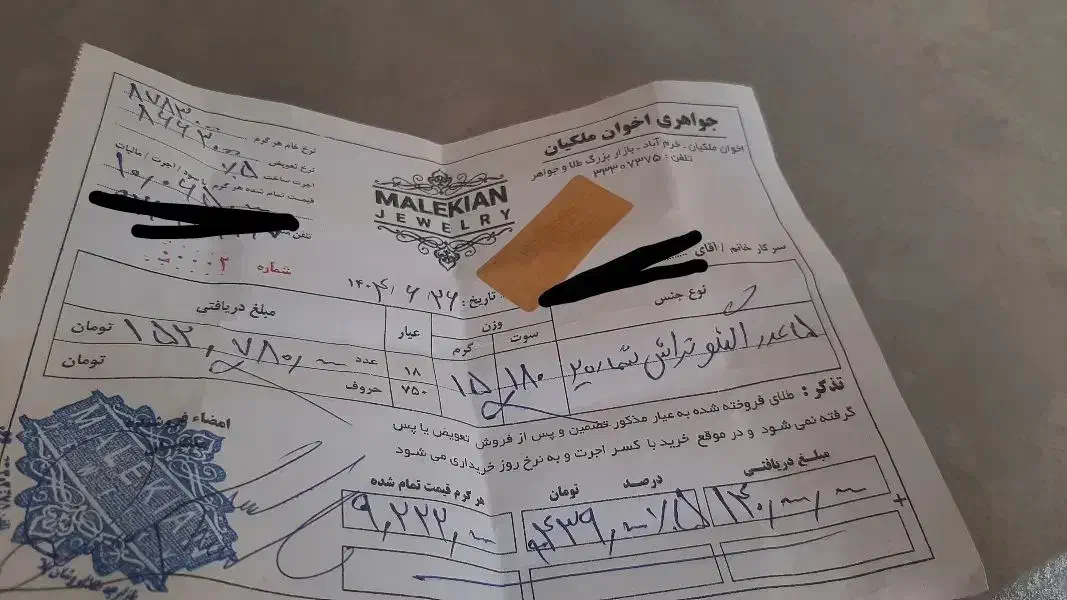 جواهری اخوان ملکیان
اخوان ملکیان ـ خرم آباد ـ بازار بزرگ طلا و جواهر
تلفن : ۳۳۳۰۷۳۷۵
MALEKIAN
JEWELRY
نرخ خام هر گرم ۸۷۸۳۰۰۰
نرخ تعویض ۸۶۶۳۰۰۰
اجرت ساخت ٪۵
اجرت / مالیات
قیمت تمام شده هر گرم با سود
تلفن
شماره ۲۰۰۰۰
سرکار خانم / آقای
تاریخ : ۱۴۰۴/۶/۲۶
نوع جنس
وزن
سوت
گرم
عیار
مبلغ دریافتی
۱۵ عدد النگو تراش شماره ۲
۱۸۰
۱۵
۱۸
۷۵۰
عدد ۱۵۲,۷۸۰,۰۰۰ تومان
حروف تومان
تذکر : طلای فروخته شده به عیار مذکور تضمین و پس از فروش تعویض یا پس
گرفته نمی شود و در موقع خرید با کسر اجرت و به نرخ روز خریداری می شود
امضاء فروشنده
مبلغ دریافتی
درصد
تومان
هر گرم قیمت تمام شده
۱۴۰,۰۰۰,۰۰۰
٪۵
۴۳۹,۰۰۰
۹,۲۲۲,۰۰۰
MALEKIAN